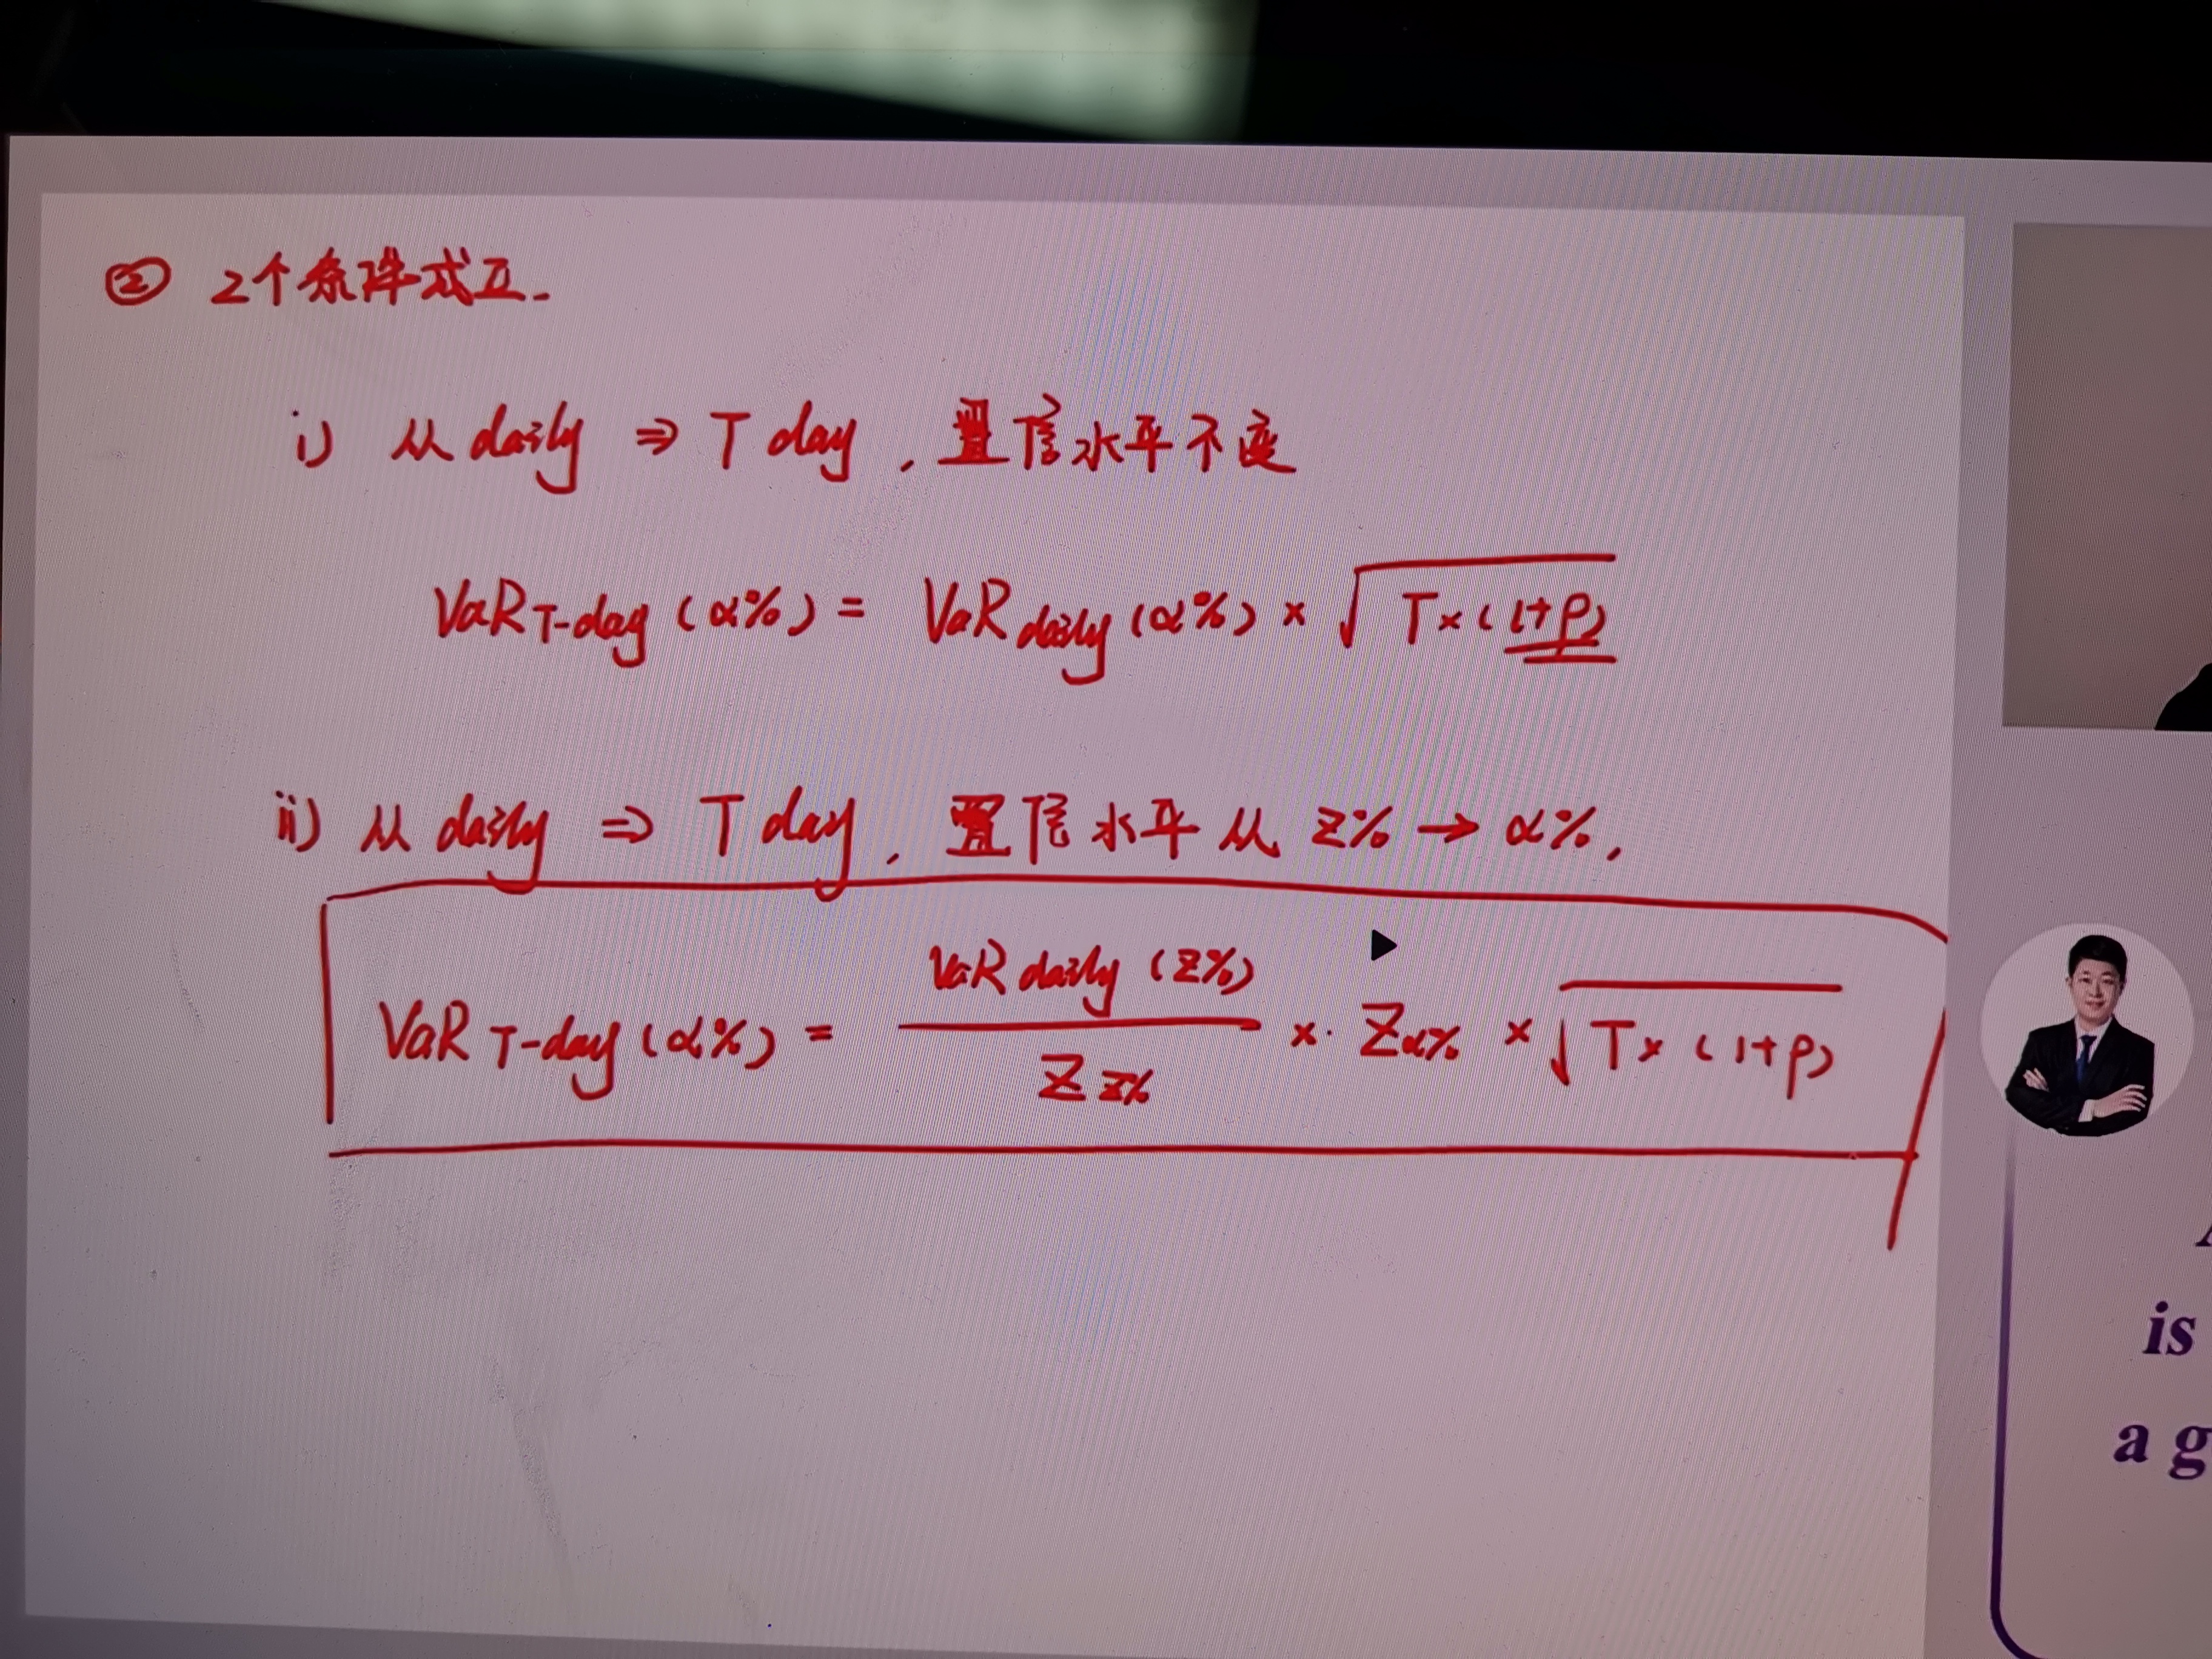 ② 2个条件成立.
i) 从 daily ⇒ T day, 置信水平不变
VaR T-day (α%) = VaR daily (α%) × √T×(1+ρ)
ii) 从 daily ⇒ T day, 置信水平从 Z% → α%,
VaR T-day (α%) = VaR daily (Z%) / Z Z% × Zα% × √T×(1+ρ)
is
a g